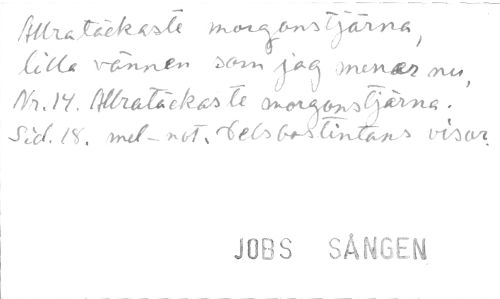 Allratäckaste morgonstjärna,
lilla vännen som jag menar nu,
Nr. 14. Allratäckaste morgonstjärna.
Sid. 18. mel-not. Delsbostintans visor.
JOBS SÅNGEN